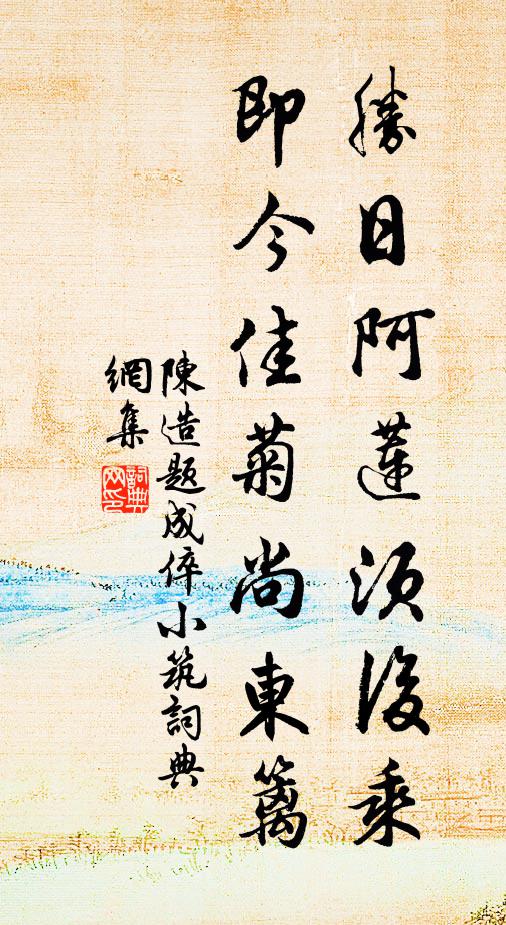 勝日阿蓮須後乘
即今佳菊尚東籬
陳造題成倅小筑詞典
網集
詞典網印